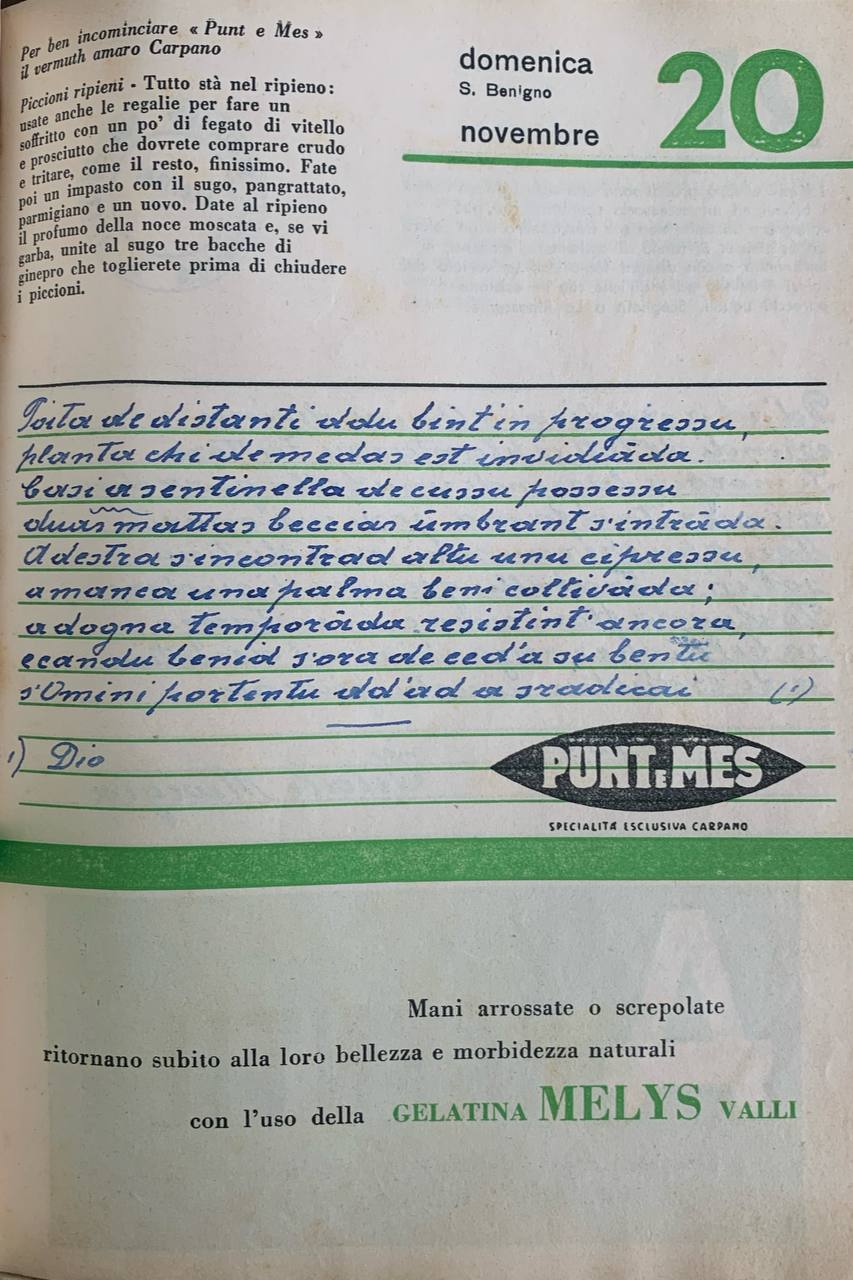 Per ben incominciare « Punt e Mes »
il vermuth amaro Carpano
Piccioni ripieni - Tutto stà nel ripieno:
usate anche le regalie per fare un
soffritto con un po' di fegato di vitello
e prosciutto che dovrete comprare crudo
e tritare, come il resto, finissimo. Fate
poi un impasto con il sugo, pangrattato,
parmigiano e un uovo. Date al ripieno
il profumo della noce moscata e, se vi
garba, unite al sugo tre bacche di
ginepro che toglierete prima di chiudere
i piccioni.
domenica
S. Benigno
novembre
20
de distanti ddu bint in progressu,
planta chi de medas est invidiàda.
basi a sentinella de cussu possessu
duas mattas beccias ùmbrant s'intràda.
A destra s'incontrad altu unu cipressu,
a manca una palma beni coltivàda;
a dogna temporàda resistint ancora,
e candu benid s'ora de ced'a su bentu
s'Omini portentu dd'ad a sradicai (1)
1) Dio
PUNT E MES
SPECIALITÀ ESCLUSIVA CARPANO
Mani arrossate o screpolate
ritornano subito alla loro bellezza e morbidezza naturali
con l'uso della GELATINA MELYS VALLI